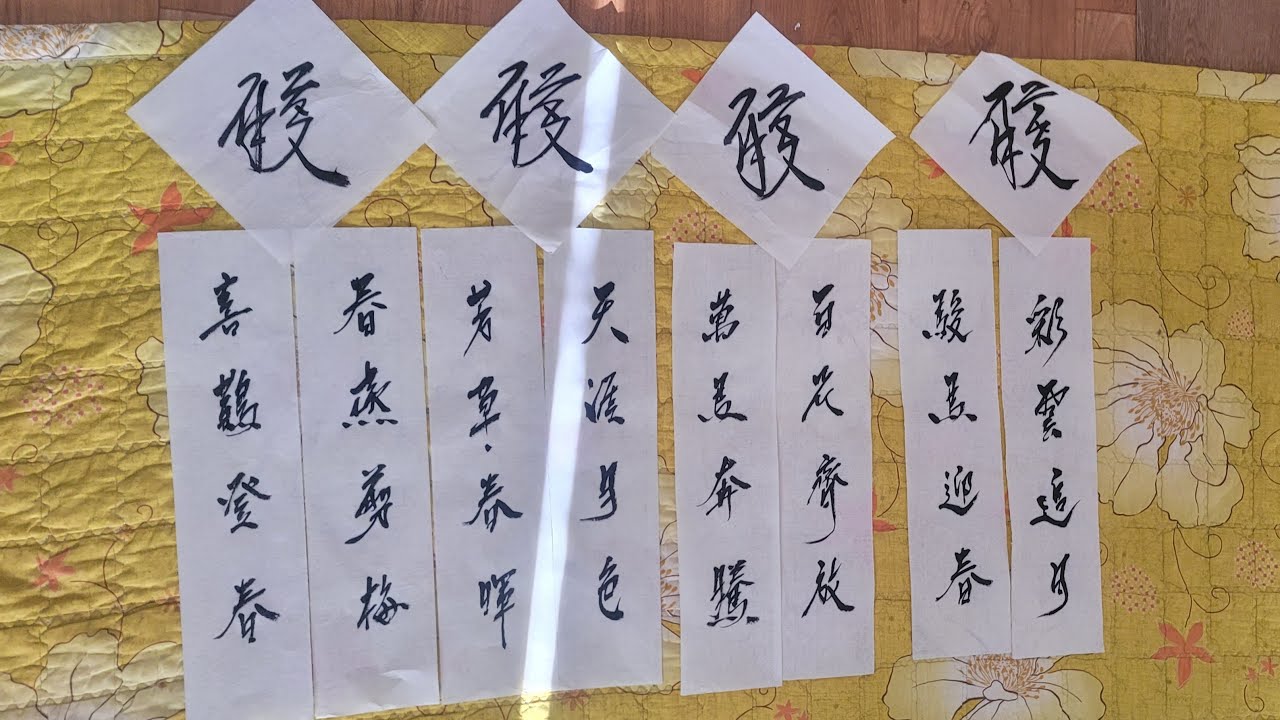 彩雲追月
駿馬迎春
百花齊放
萬馬奔騰
天涯月色
芳草春暉
春燕剪梅
喜鵲登春